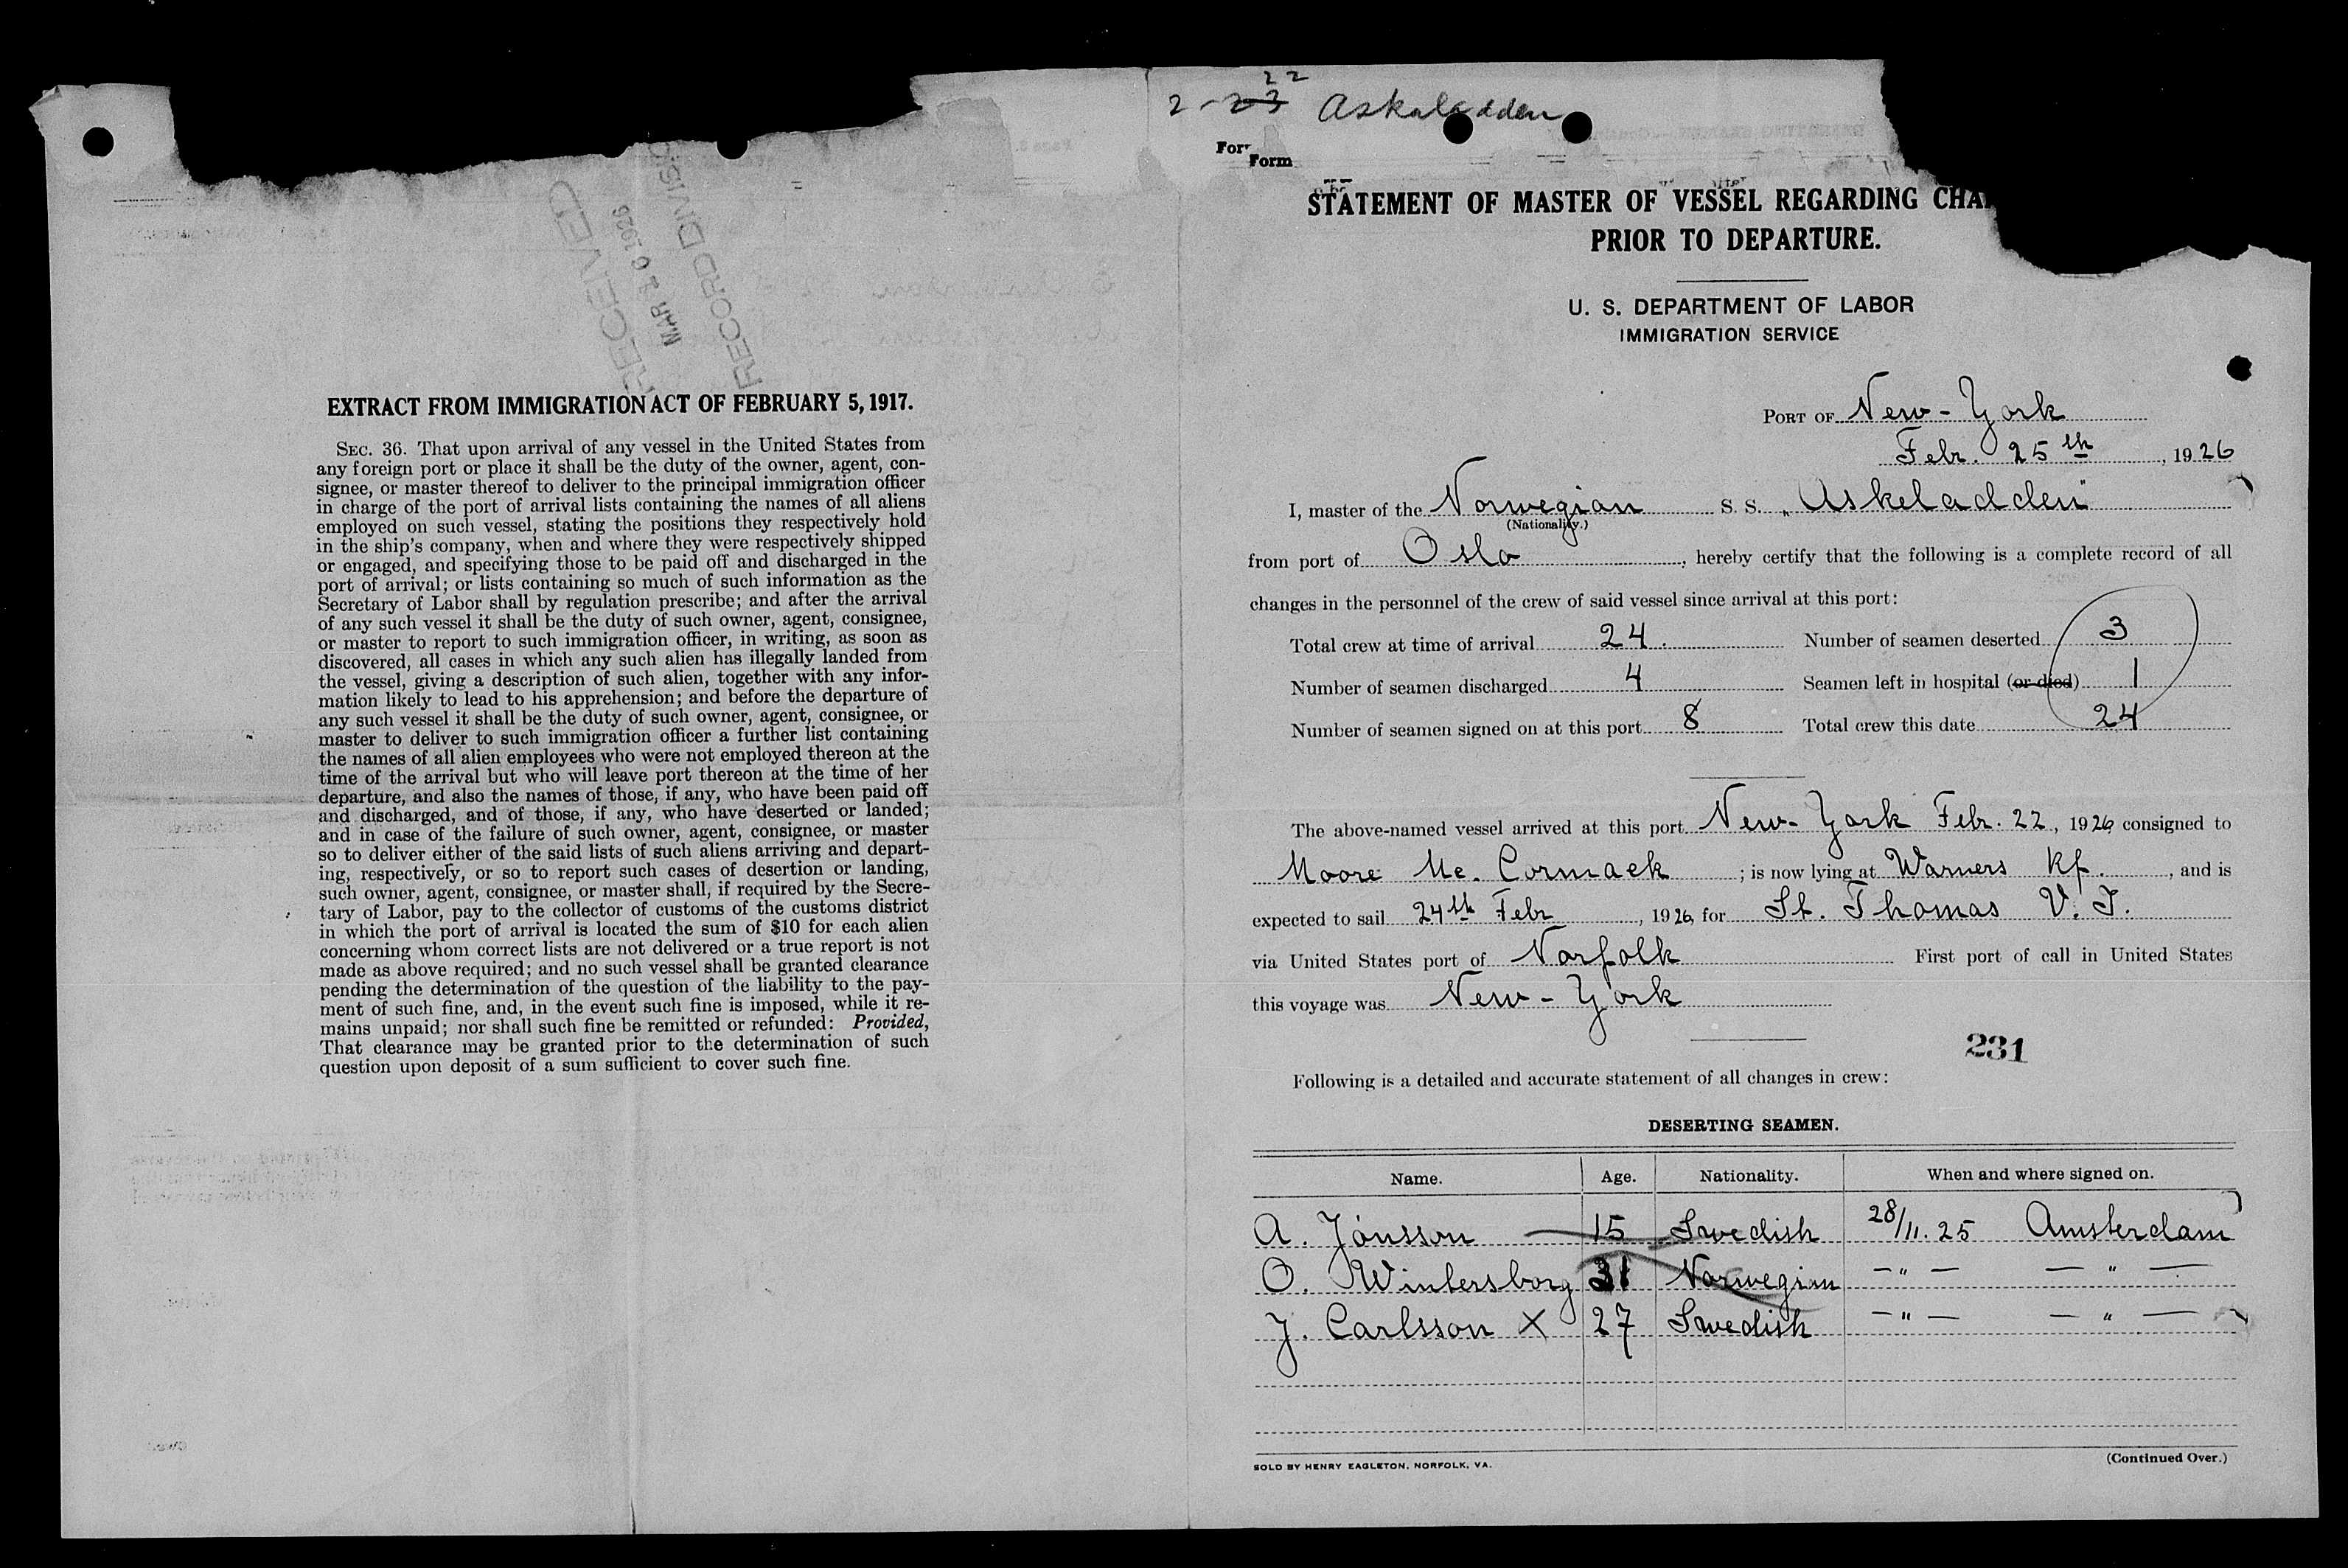 RECEIVED
MAR 20 1926
RECORD DIVIS
EXTRACT FROM IMMIGRATION ACT OF FEBRUARY 5, 1917.
SEC. 36. That upon arrival of any vessel in the United States from
any foreign port or place it shall be the duty of the owner, agent, con-
signee, or master thereof to deliver to the principal immigration officer
in charge of the port of arrival lists containing the names of all aliens
employed on such vessel, stating the positions they respectively hold
in the ship's company, when and where they were respectively shipped
or engaged, and specifying those to be paid off and discharged in the
port of arrival; or lists containing so much of such information as the
Secretary of Labor shall by regulation prescribe; and after the arrival
of any such vessel it shall be the duty of such owner, agent, consignee,
or master to report to such immigration officer, in writing, as soon as
discovered, all cases in which any such alien has illegally landed from
the vessel, giving a description of such alien, together with any infor-
mation likely to lead to his apprehension; and before the departure of
any such vessel it shall be the duty of such owner, agent, consignee, or
master to deliver to such immigration officer a further list containing
the names of all alien employees who were not employed thereon at the
time of the arrival but who will leave port thereon at the time of her
departure, and also the names of those, if any, who have been paid off
and discharged, and of those, if any, who have deserted or landed;
and in case of the failure of such owner, agent, consignee, or master
so to deliver either of the said lists of such aliens arriving and depart-
ing, respectively, or so to report such cases of desertion or landing,
such owner, agent, consignee, or master shall, if required by the Secre-
tary of Labor, pay to the collector of customs of the customs district
in which the port of arrival is located the sum of $10 for each alien
concerning whom correct lists are not delivered or a true report is not
made as above required; and no such vessel shall be granted clearance
pending the determination of the question of the liability to the pay-
ment of such fine, and, in the event such fine is imposed, while it re-
mains unpaid; nor shall such fine be remitted or refunded: Provided,
That clearance may be granted prior to the determination of such
question upon deposit of a sum sufficient to cover such fine.
22
2-23 Askaladden
For
Form
STATEMENT OF MASTER OF VESSEL REGARDING CHA
PRIOR TO DEPARTURE.
U. S. DEPARTMENT OF LABOR
IMMIGRATION SERVICE
PORT OF New-York
Febr. 25th, 1926
I, master of the Norwegian S. S. „Askeladden"
(Nationality.)
from port of Oslo, hereby certify that the following is a complete record of all
changes in the personnel of the crew of said vessel since arrival at this port:
Total crew at time of arrival 24. Number of seamen deserted 3
Number of seamen discharged 4 Seamen left in hospital (or died) 1
Number of seamen signed on at this port 8 Total crew this date 24
The above-named vessel arrived at this port New-York Febr. 22, 1926, consigned to
Moore Mc. Cormack; is now lying at Warners Kf., and is
expected to sail 24th Febr, 1926, for St. Thomas V. I.
via United States port of Norfolk First port of call in United States
this voyage was New-York
231
Following is a detailed and accurate statement of all changes in crew:
DESERTING SEAMEN.
Name. Age. Nationality. When and where signed on.
A. Jónsson 15 Swedish 28/11.25 Amsterdam
O. Wintersborg 31 Norwegian —"— —"—
J. Carlsson X 27 Swedish —"— —"—
SOLD BY HENRY EAGLETON, NORFOLK, VA.
(Continued Over.)